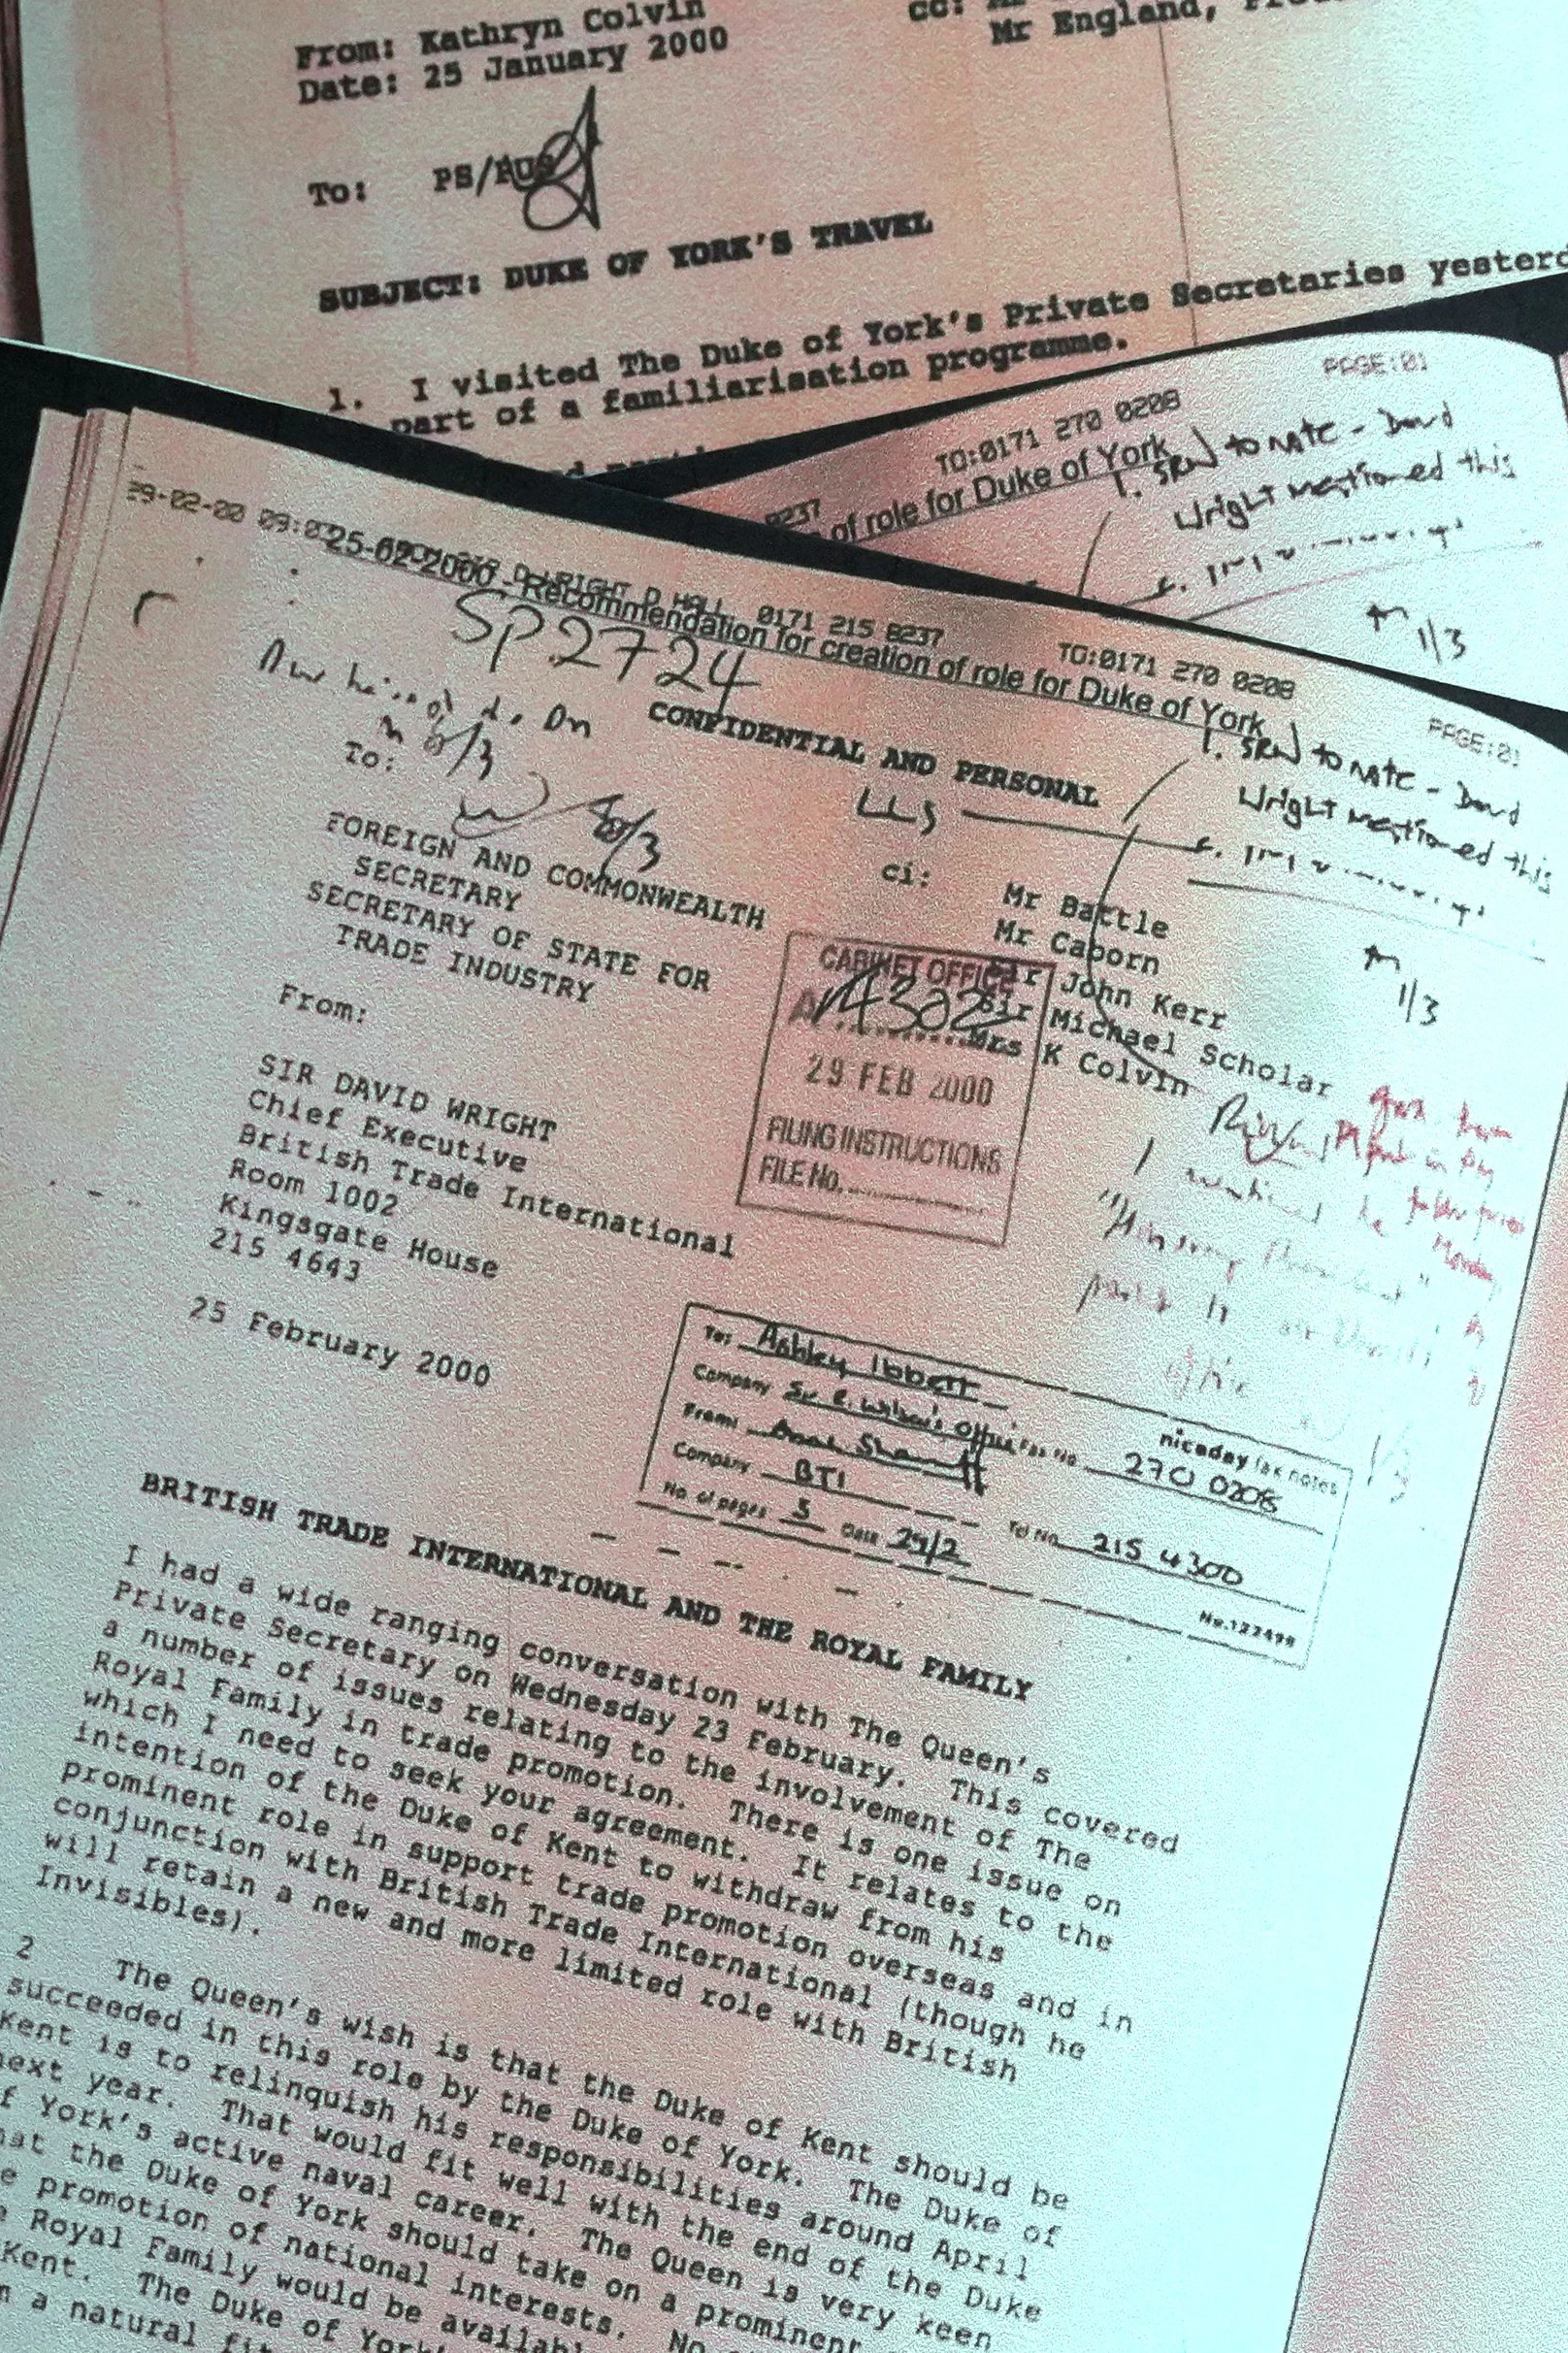 From: Kathryn Colvin
Date: 25 January 2000
cc:
Mr England,
To: PS/PUS
SUBJECT: DUKE OF YORK'S TRAVEL
1. I visited The Duke of York's Private Secretaries
part of a familiarisation programme.
PAGE:01
TO:0171 270 0208
8237
of role for Duke of York
1. SRW to note - David
Wright mentioned this
1/3
29-02-00 09:0
D WRIGHT D HALL 0171 215 8237
TO:0171 270 0208
PAGE:01
25-02-2000 - Recommendation for creation of role for Duke of York
SP2724
CONFIDENTIAL AND PERSONAL
1. SRW to note - David
Wright mentioned this
1/3
8/3
To:
8/3
FOREIGN AND COMMONWEALTH
SECRETARY
SECRETARY OF STATE FOR
TRADE INDUSTRY
ci:
Mr Battle
Mr Caborn
Sir John Kerr
Sir Michael Scholar
Mrs K Colvin
CABINET OFFICE
A 4302
29 FEB 2000
FILING INSTRUCTIONS
FILE No.
From:
SIR DAVID WRIGHT
Chief Executive
British Trade International
Room 1002
Kingsgate House
215 4643
25 February 2000
To: Ashley Ibbett
Company Sir R. Wilson's Office Fax No 270 0208
From:
Company BTI Tel No 215 4300
No. of pages 3 Date 29/2
niceday fax notes
No.122499
BRITISH TRADE INTERNATIONAL AND THE ROYAL FAMILY
I had a wide ranging conversation with The Queen's
Private Secretary on Wednesday 23 February. This covered
a number of issues relating to the involvement of The
Royal Family in trade promotion. There is one issue on
which I need to seek your agreement. It relates to the
intention of the Duke of Kent to withdraw from his
prominent role in support trade promotion overseas and in
conjunction with British Trade International (though he
will retain a new and more limited role with British
Invisibles).
2 The Queen's wish is that the Duke of Kent should be
succeeded in this role by the Duke of York. The Duke of
Kent is to relinquish his responsibilities around April
next year. That would fit well with the end of the Duke
of York's active naval career. The Queen is very keen
that the Duke of York should take on a prominent
promotion of national interests. No
Royal Family would be
Kent. The Duke of York's
a natural fit